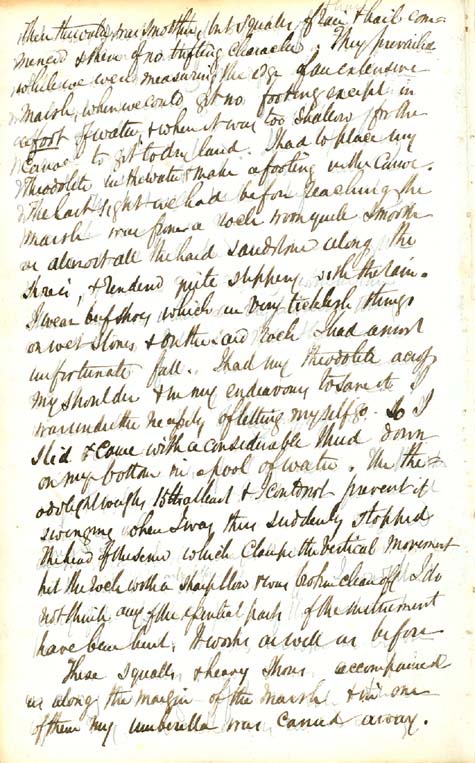 When the water was smoother, but squalls of rain & hail com-
menced & these of no trifling character. They prevailed
while we were measuring the edge of an extensive
marsh, when we could get no footing except in
a foot of water, & when it was too shallow for the
Canoe to get to dry land. I had to place my
Theodolite in the water & make a footing in the Canoe.
The last sight we had before reaching the
marsh was from a rock worn quite smooth
as almost all the hard sandstone along the
shore is, & rendered quite slippery with the rain.
I wear beef shoes which are very ticklish things
on wet stones & on the said rock I had a most
unfortunate fall. I had my theodolite across
my shoulder & in my endeavours to save it I
was under the necessity of letting myself go. So I
slid & came with a considerable thud down
on my bottom in a pool of water. The the-
odolite weighs 15 lbs at least & I could not prevent it
swinging when I was thus suddenly stopped
The head of the screw which clamps the vertical movement
hit the rock with a sharp blow & was broken clean off. I do
not think any of the essential parts of the instrument
have been bent. It works as well as before
These squalls & heavy showers accompanied
us along the margin of the marsh & in one
of them my umberilla was carried away.